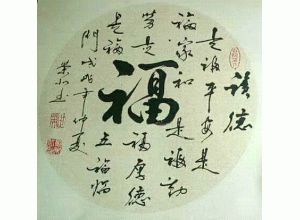 德
是福平安是
福家和是福勤
劳是福厚德
福
是福五福临
門戊戌年仲夏